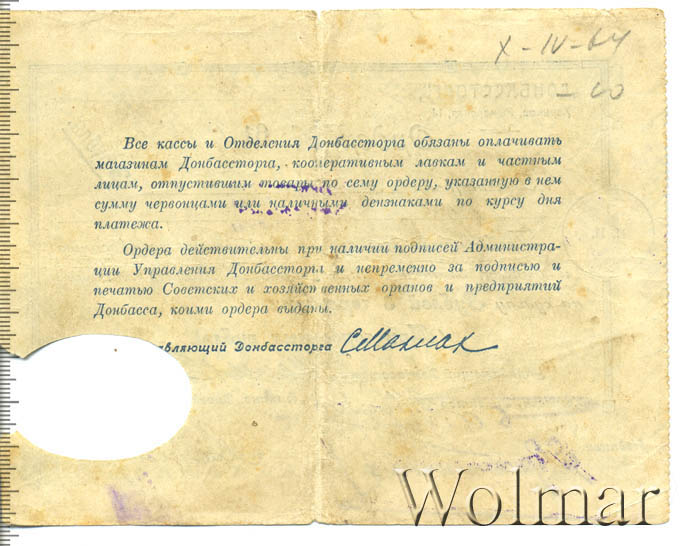 X-IV-64
-60
Все кассы и Отделения Донбассторга обязаны оплачивать
магазинам Донбассторга, кооперативным лавкам и частным
лицам, отпустившим товары по сему ордеру, указанную в нем
сумму червонцами или наличными дензнаками по курсу дня
платежа.
Ордера действительны при наличии подписей Администра-
ции Управления Донбассторга и непременно за подписью и
печатью Советских и хозяйственных органов и предприятий
Донбасса, коими ордера выданы.
вляющий Донбассторга
Wolmar